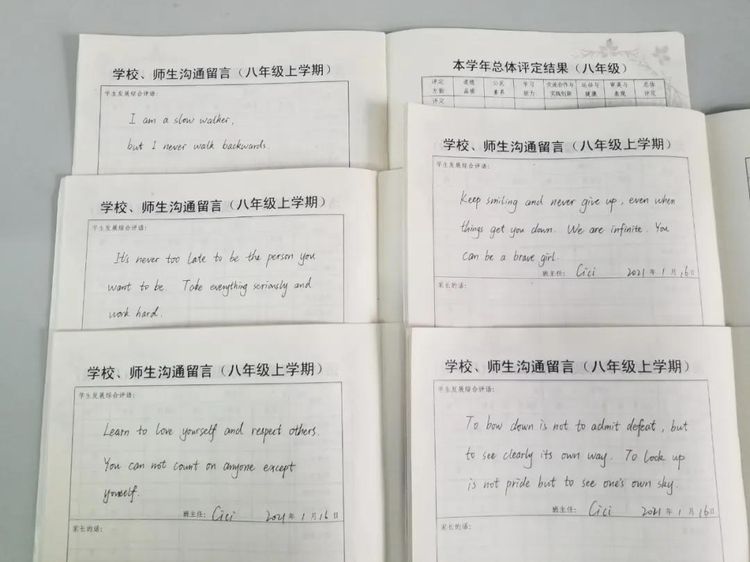 学校、师生沟通留言（八年级上学期）
学生发展综合评语：
I am a slow walker,
but I never walk backwards.
本学年总体评定结果（八年级）
评定方面 道德品质 公民素养 学习能力 交流合作与实践创新 运动与健康 审美与表现 总体评定
评定
学校、师生沟通留言（八年级上学期）
学生发展综合评语：
Keep smiling and never give up, even when
things get you down. We are infinite. You
can be a brave girl.
班主任： Cici 2021年1月16日
家长的话：
学校、师生沟通留言（八年级上学期）
学生发展综合评语：
It's never too late to be the person you
want to be. Take everything seriously and
work hard.
学校、师生沟通留言（八年级上学期）
学生发展综合评语：
Learn to love yourself and respect others.
You can not count on anyone except
yourself.
班主任： Cici 2021年1月16日
家长的话：
学校、师生沟通留言（八年级上学期）
学生发展综合评语：
To bow down is not to admit defeat, but
to see clearly its own way. To look up
is not pride but to see one's own sky.
班主任： Cici 2021年1月16日
家长的话：